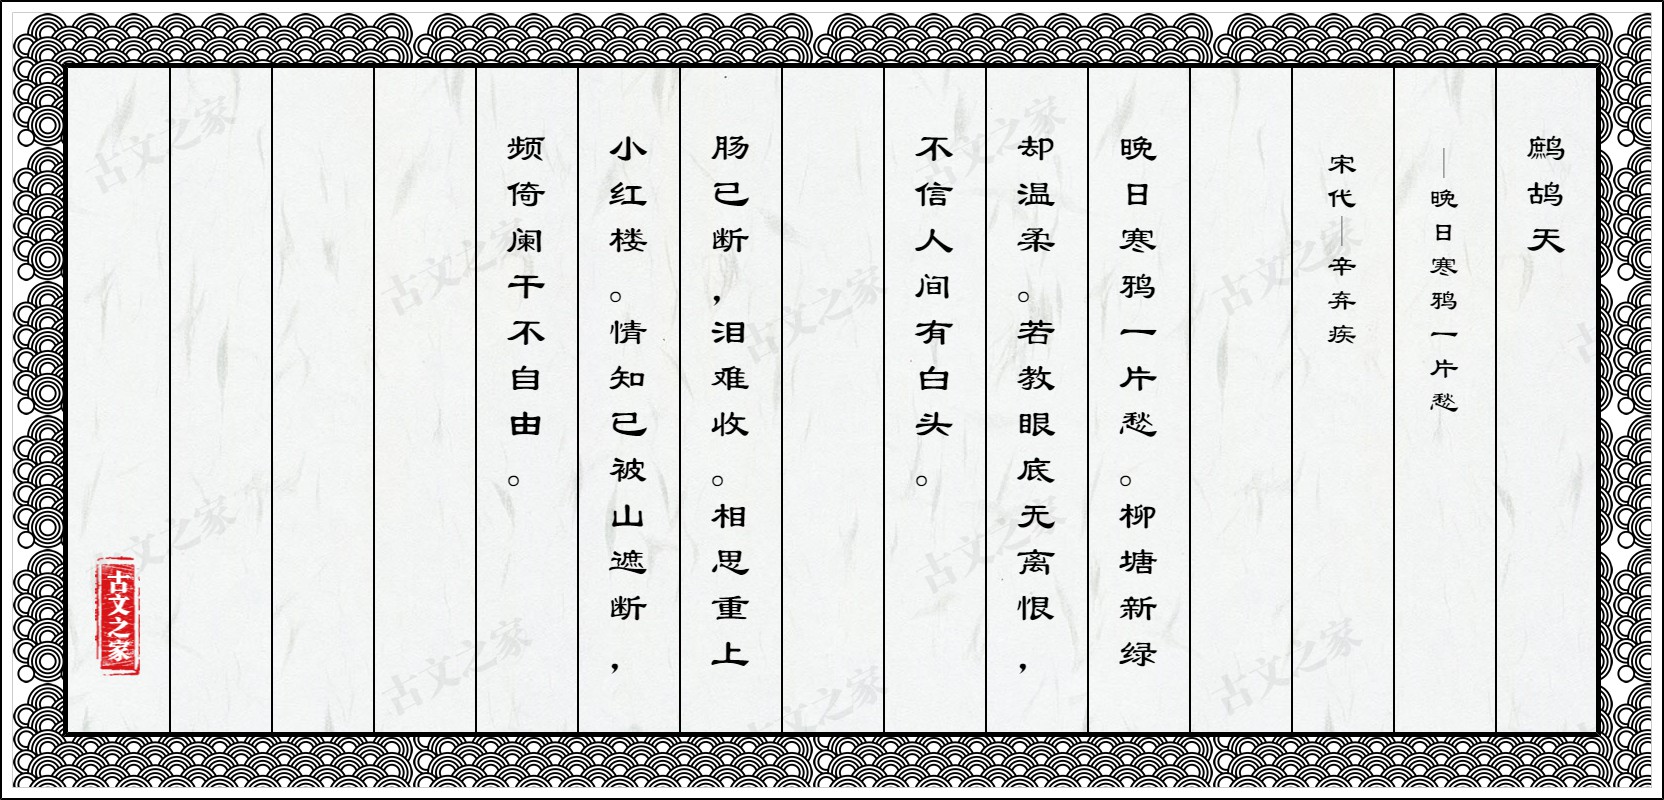 鹧鸪天
—晚日寒鸦一片愁
宋代—辛弃疾
晚日寒鸦一片愁。柳塘新绿
却温柔。若教眼底无离恨，
不信人间有白头。
肠已断，泪难收。相思重上
小红楼。情知已被山遮断，
频倚阑干不自由。
古文之家